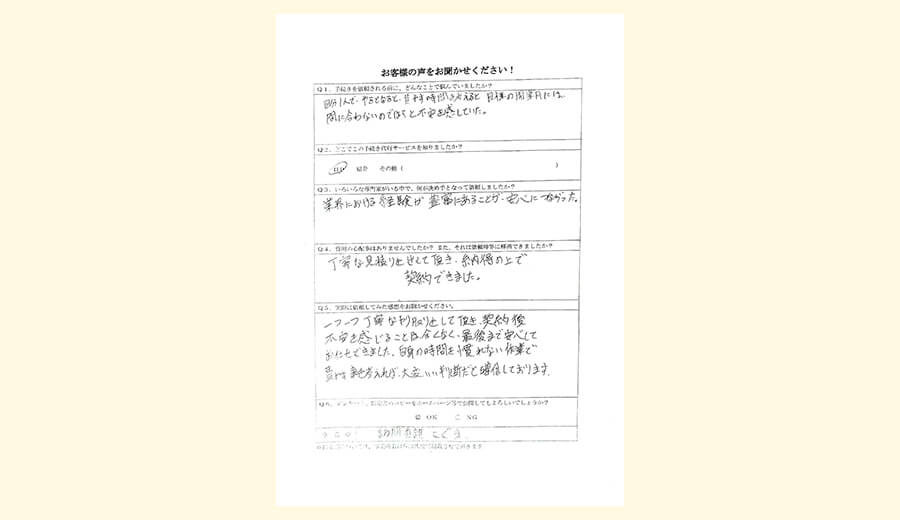 お客様の声をお聞かせください！
Q1、手続きを依頼される前に、どんなことで悩んでいましたか？
自分1人でやるとなると、費やす時間を考えると目標の開業月には
間に合わないのではと不安を感じていた。
Q2、どこでこの手続き代行サービスを知りましたか？
HP 紹介 その他（ ）
Q3、いろいろな専門家がいる中で、何が決め手となって依頼しましたか？
業界における経験が豊富にあることが、安心につながった。
Q4、費用の心配事はありませんでしたか？ また、それは依頼時等に解消できましたか？
丁寧な見積り出しして頂き、納得の上で
契約できました。
Q5、実際に依頼してみた感想をお聞かせください。
一つ一つ丁寧な やり取りして頂き、契約後
不安を感じることは全くなく、最後まで安心して
おまかせできました。自身の時間を慣れない作業で
考えれば、大変いい判断だと確信しております。
ホームページ等で公開してもよろしいでしょうか？
OK NG
訪問看護